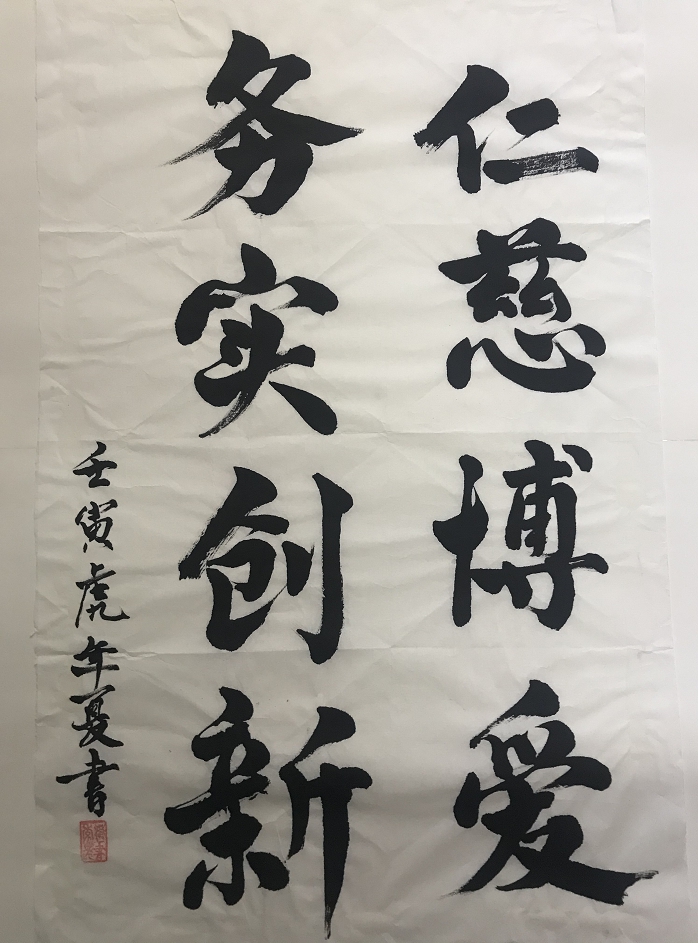 仁慈博爱
务实创新
壬寅虎年夏書